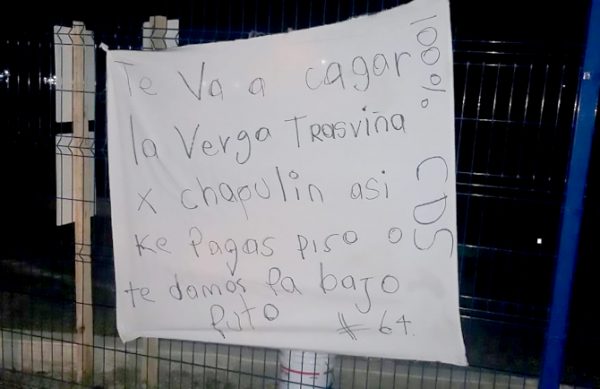 Te Va a cagar
la Verga TRasviña
x chapulin asi
Ke Pagas piso o
te damos Pa bajo
Puto #64.
100% CDS